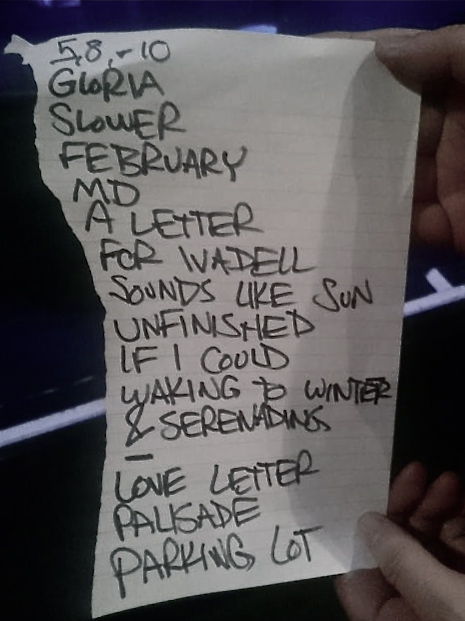 5,8,-10
GLORIA
SLOWER
FEBRUARY
MD
A LETTER
FOR WADELL
SOUNDS LIKE SUN
UNFINISHED
IF I COULD
WAKING TO WINTER
& SERENADING
—
LOVE LETTER
PALISADE
PARKING LOT